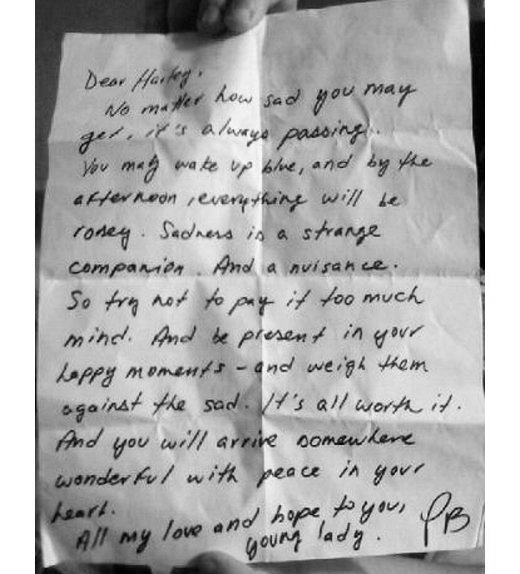 Dear Harley,
No matter how sad you may
get, it's always passing..
You may wake up blue, and by the
afternoon, everything will be
rosey. Sadness is a strange
companion. And a nuisance.
So try not to pay it too much
mind. And be present in your
happy moments - and weigh them
against the sad. It's all worth it.
And you will arrive somewhere
wonderful with peace in your
heart.
All my love and hope to you,
young lady. PB